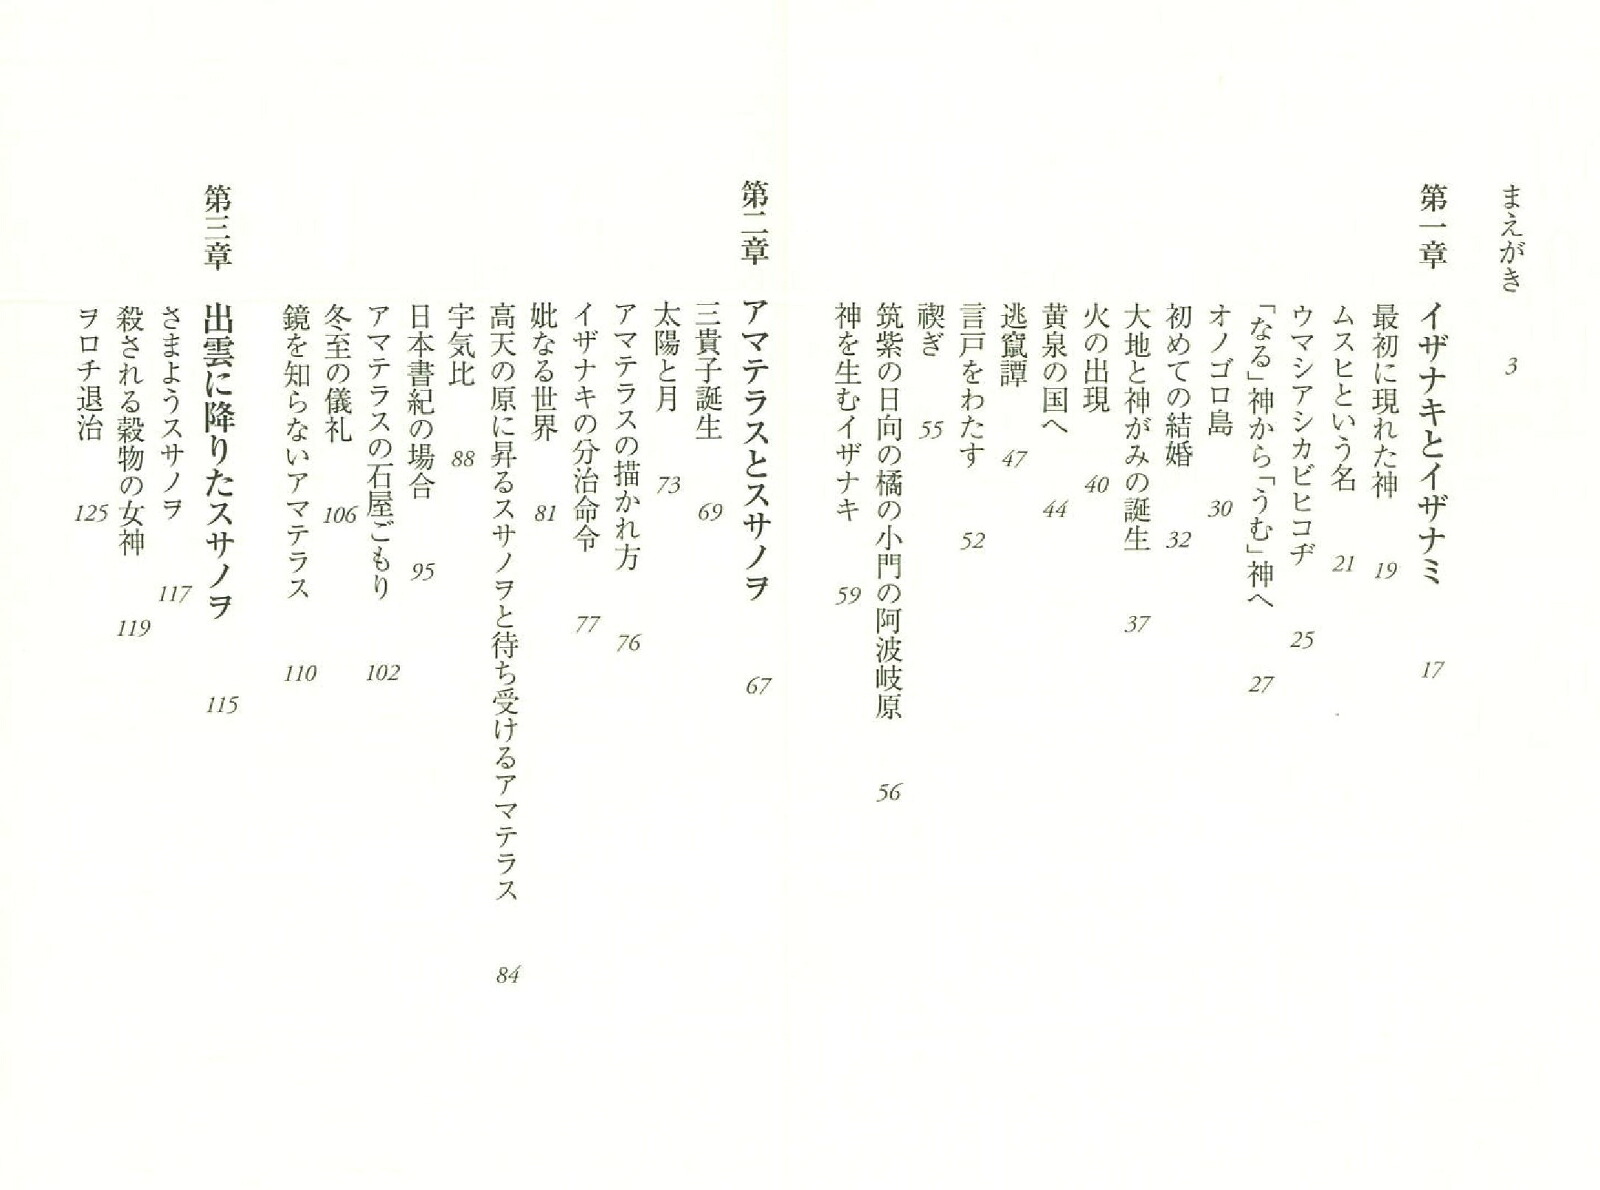 まえがき 3
第一章 イザナキとイザナミ 17
最初に現れた神 19
ムスヒという名 21
ウマシアシカビヒコヂ 25
「なる」神から「うむ」神へ 27
オノゴロ島 30
初めての結婚 32
大地と神がみの誕生 37
火の出現 40
黄泉の国へ 44
逃竄譚 47
言戸をわたす 52
禊ぎ 55
筑紫の日向の橘の小門の阿波岐原 56
神を生むイザナキ 59
第二章 アマテラスとスサノヲ 67
三貴子誕生 69
太陽と月 73
アマテラスの描かれ方 76
イザナキの分治命令 77
妣なる世界 81
高天の原に昇るスサノヲと待ち受けるアマテラス 84
宇気比 88
日本書紀の場合 95
アマテラスの石屋ごもり 102
冬至の儀礼 106
鏡を知らないアマテラス 110
第三章 出雲に降りたスサノヲ 115
さまようスサノヲ 117
殺される穀物の女神 119
ヲロチ退治 125